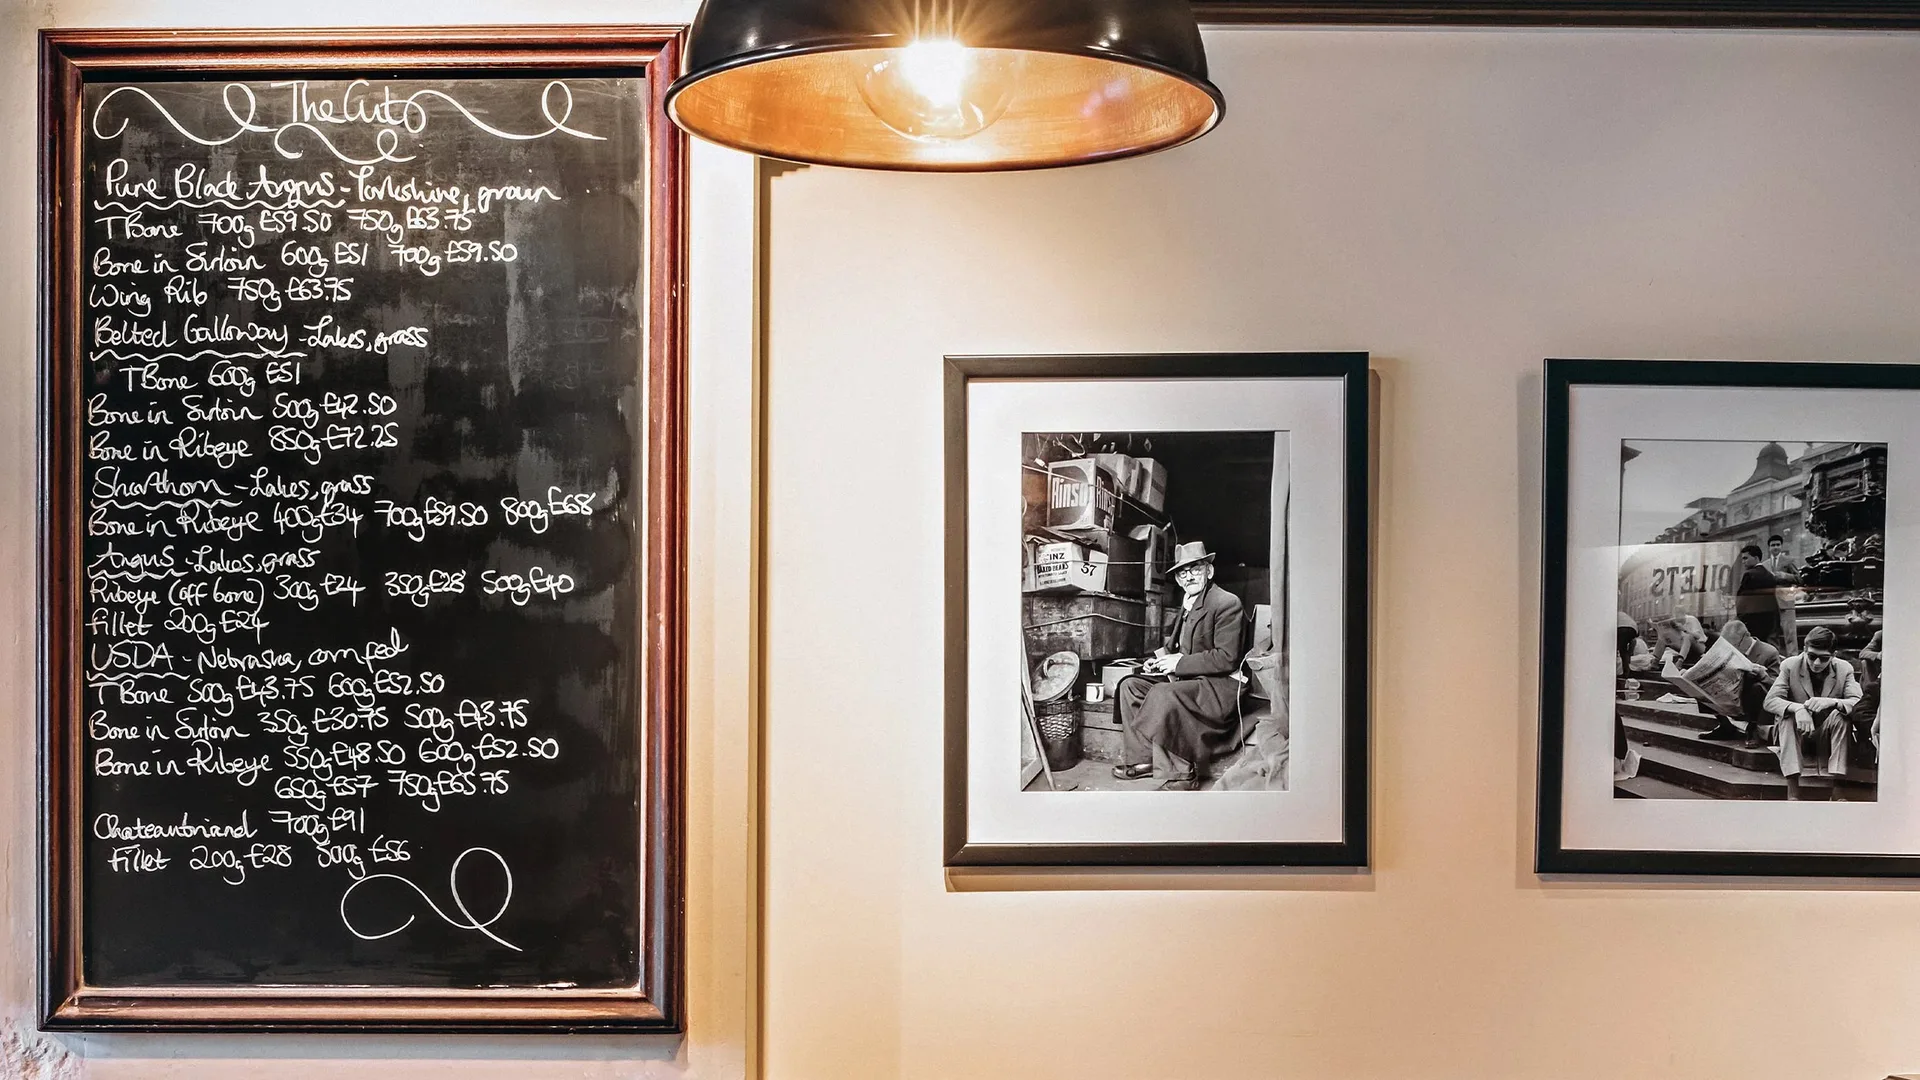 The Cuts
Pure Black Angus - Yorkshire, grain
T Bone 700g £59.50 750g £63.75
Bone in Sirloin 600g £51 700g £59.50
Wing Rib 750g £63.75
Belted Galloway - Lakes, grass
T Bone 600g £51
Bone in Sirloin 500g £42.50
Bone in Ribeye 850g £72.25
Shorthorn - Lakes, grass
Bone in Ribeye 400g £34 700g £59.50 800g £68
Angus - Lakes, grass
Ribeye (off bone) 300g £24 350g £28 500g £40
Fillet 200g £24
USDA - Nebraska, corn fed
T Bone 500g £43.75 600g £52.50
Bone in Sirloin 350g £30.75 500g £43.75
Bone in Ribeye 550g £48.50 600g £52.50
650g £57 750g £65.75
Chateaubriand 700g £91
Fillet 200g £28 £56
Rinso Rinso
INZ
BAKED BEANS
57
OILETS